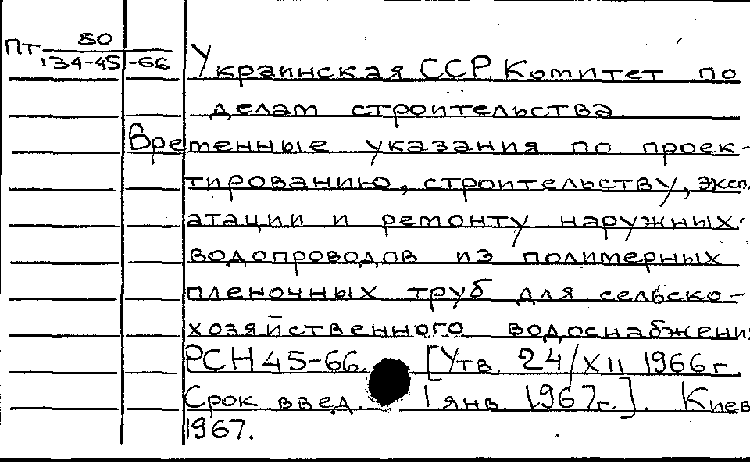 Пт 50
134-45-66
Украинская ССР Комитет по
делам строительства
Временные указания по проек-
тированию, строительству, эксп.
атации и ремонту наружных
водопроводов из полимерных
пленочных труб для сельско-
хозяйственного водоснабжени
РСН 45-66. [Утв. 24/XII 1966 г.
Срок введ. 1 янв 1967г.]. Киев
1967.